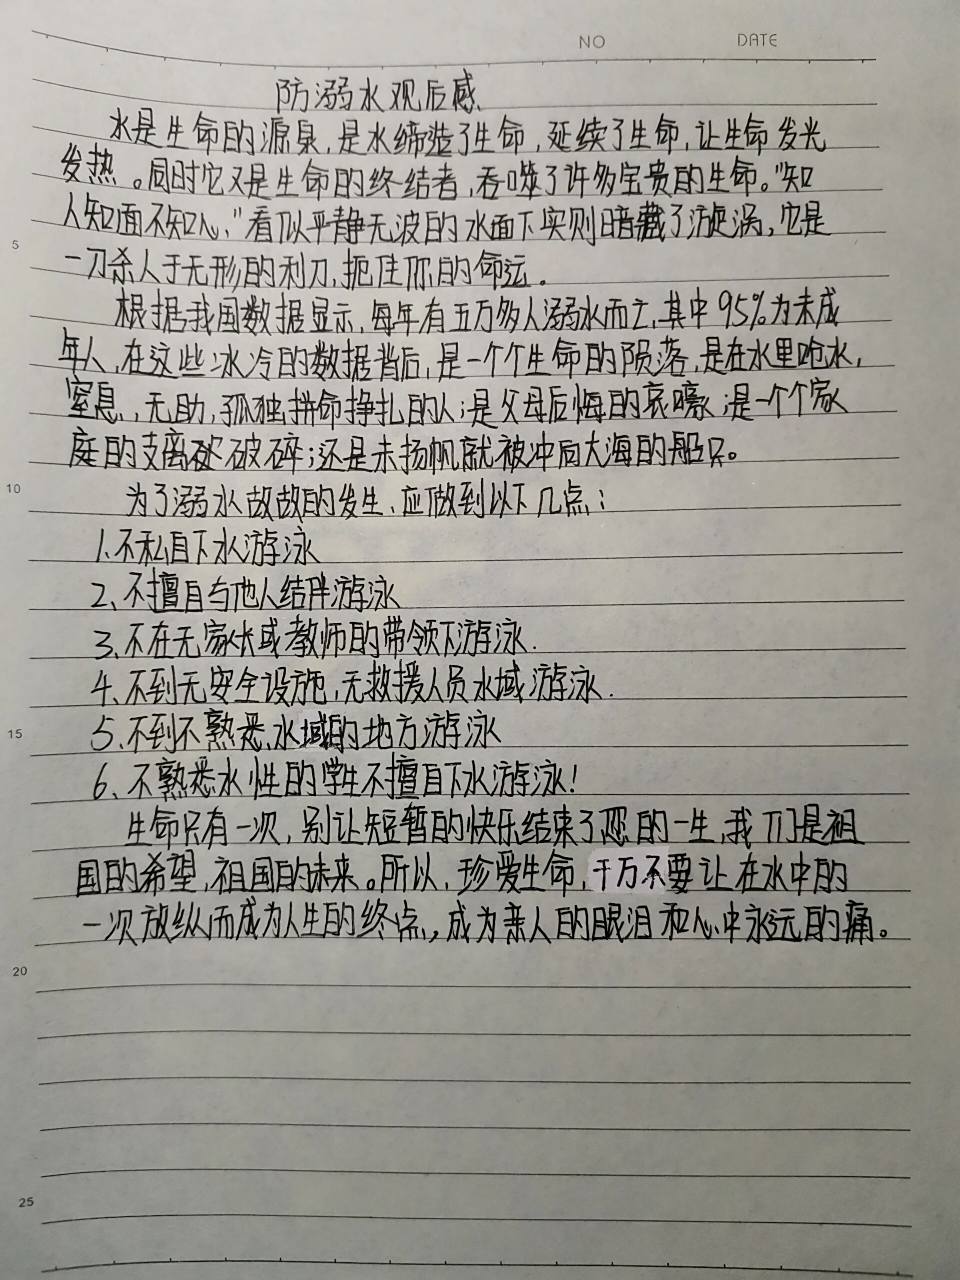 NO DATE
防溺水观后感
水是生命的源泉,是水缔造了生命,延续了生命,让生命发光
发热。同时它又是生命的终结者,吞噬了许多宝贵的生命。"知
人知面不知心,"看似平静无波的水面下实则暗藏了漩涡,它是
5
一刀杀人于无形的利刀,扼住你的命运。
根据我国数据显示,每年有五万多人溺水而亡,其中95%为未成
年人,在这些冰冷的数据背后,是一个个生命的陨落,是在水里呛水,
窒息,无助,孤独拼命挣扎的人;是父母后悔的哀嚎;是一个个家
庭的支离破碎;还是未扬帆就被冲向大海的船只。
10
为了溺水故故的发生,应做到以下几点:
1.不私自下水游泳
2、不擅自与他人结伴游泳
3、不在无家长或教师的带领下游泳.
4、不到无安全设施,无救援人员水域游泳.
15
5、不到不熟悉水域的地方游泳
6、不熟悉水性的学生不擅自下水游泳!
生命只有一次,别让短暂的快乐结束了您的一生,我们是祖
国的希望,祖国的未来。所以,珍爱生命,千万不要让在水中的
一次放纵而成为人生的终点,成为亲人的眼泪和心中永远的痛。
20
25